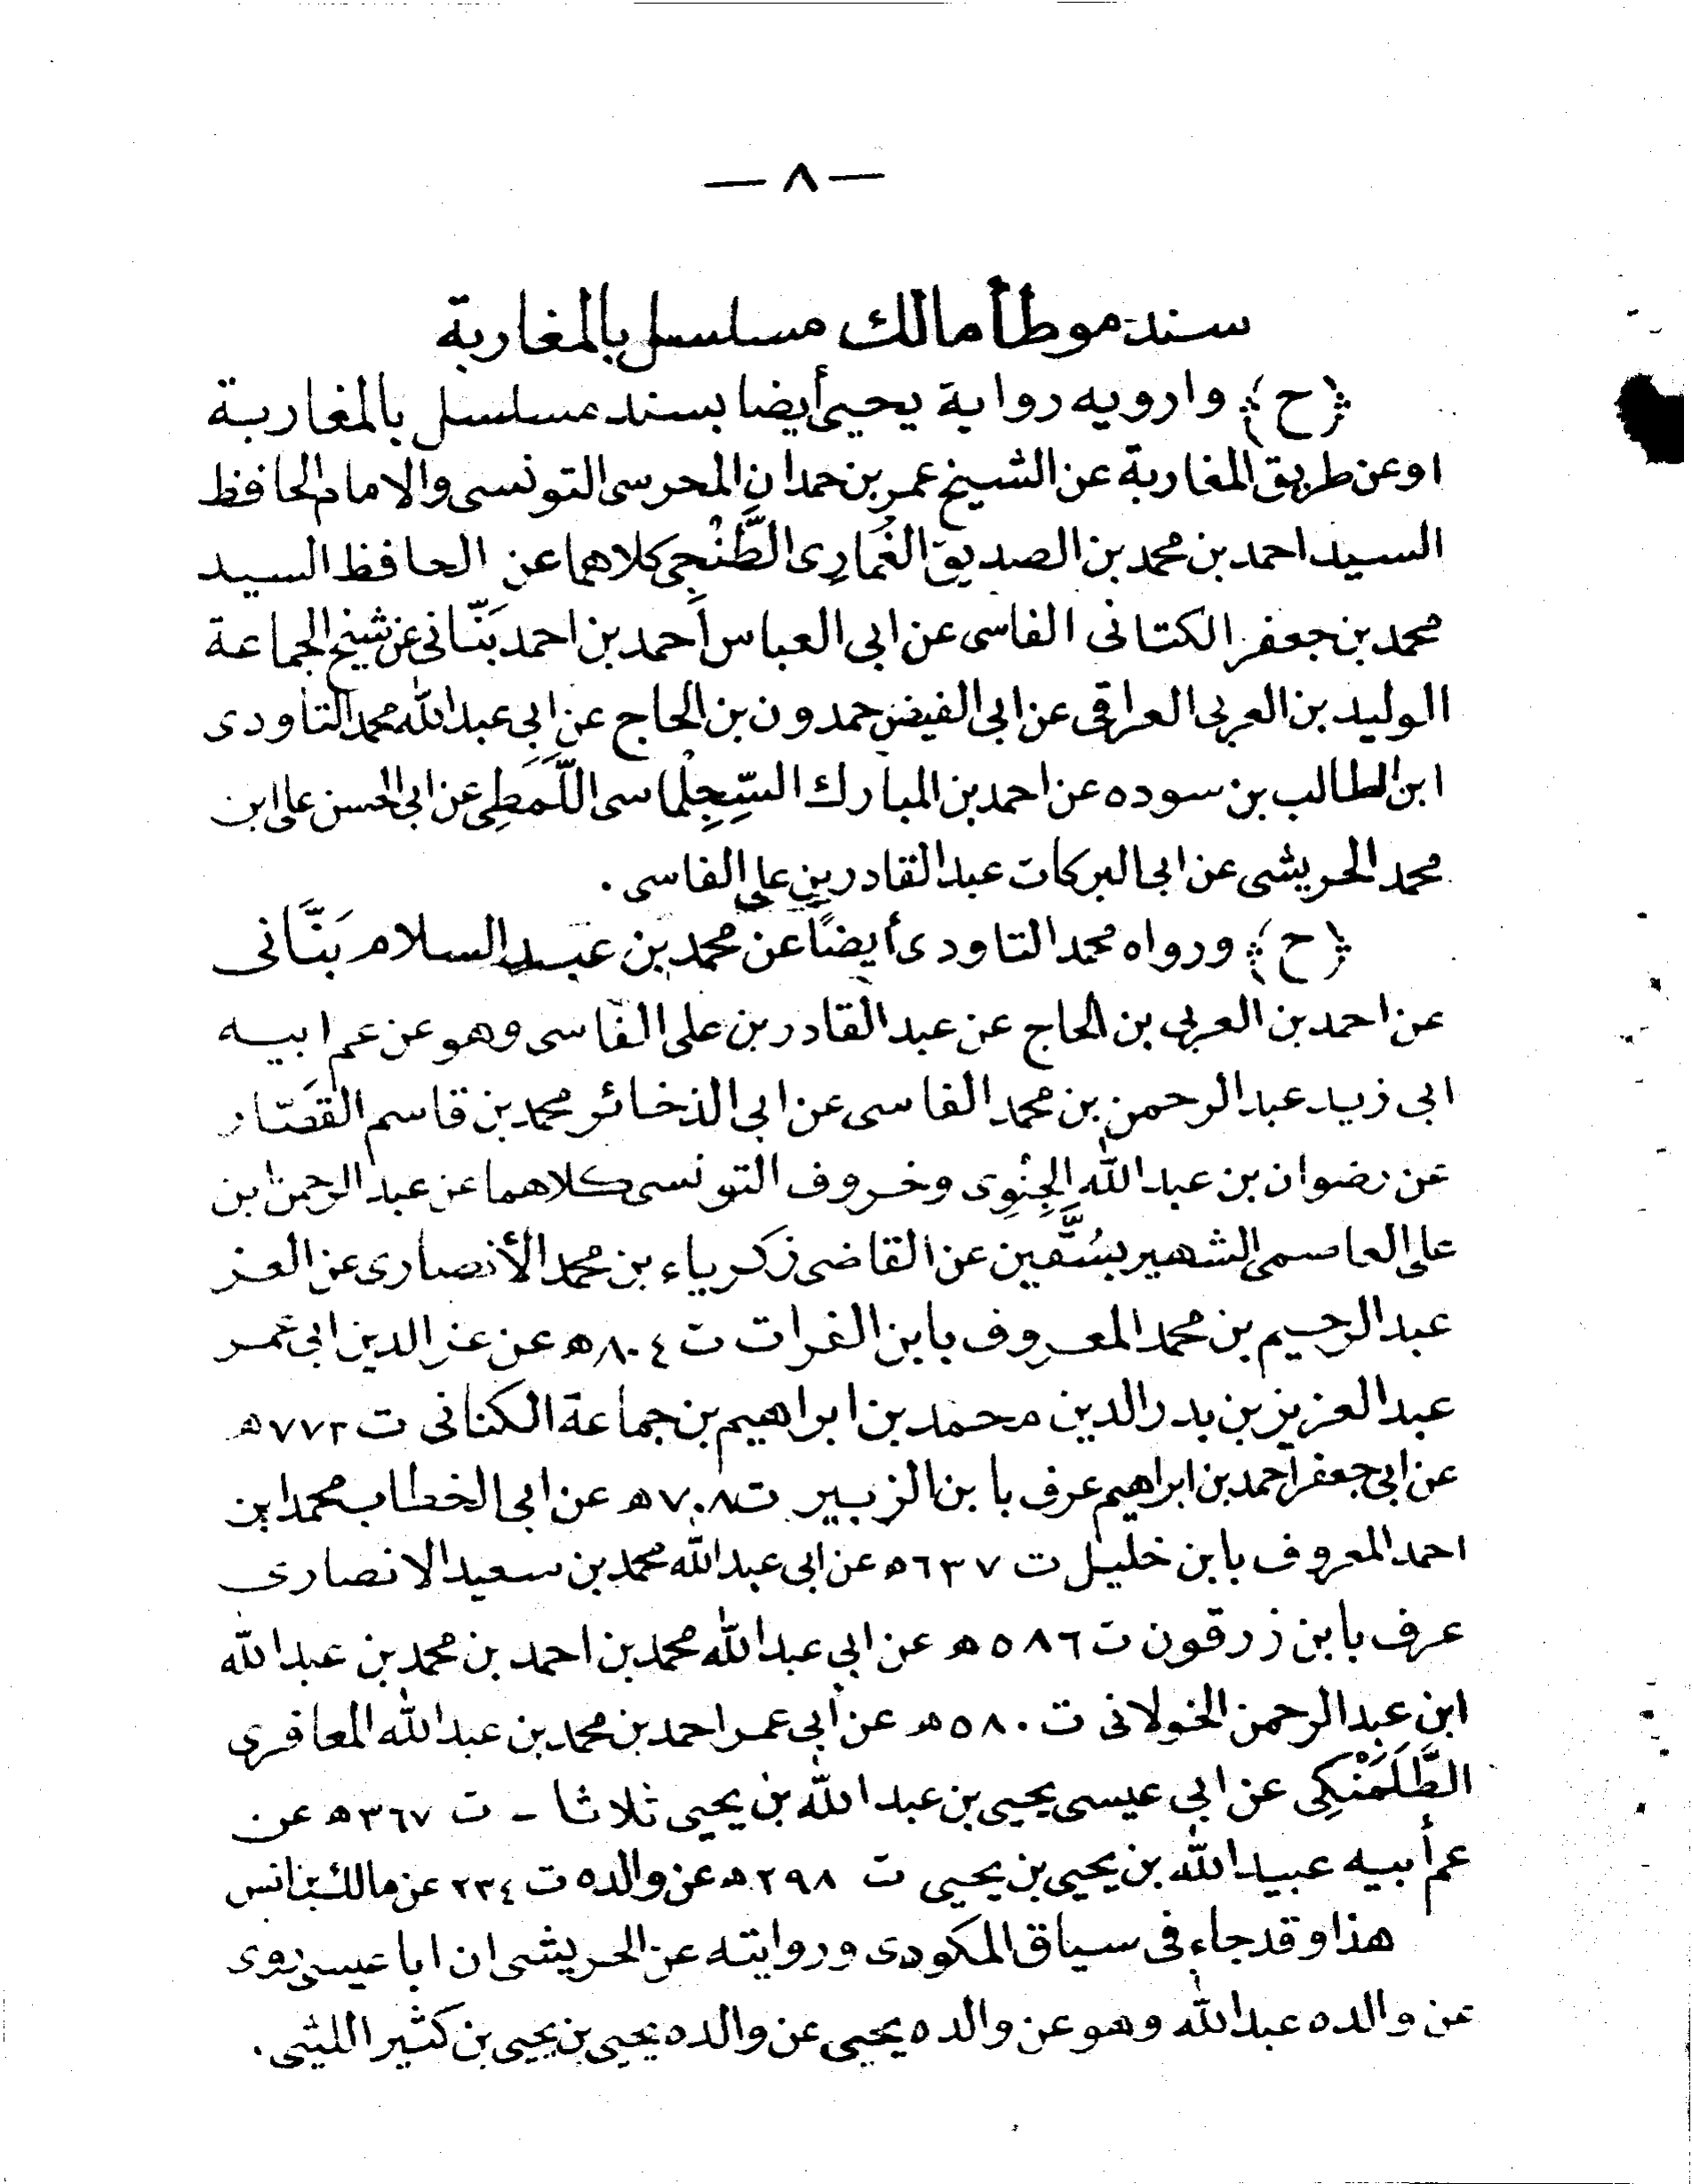 — ٨ —
سند موطأ مالك مسلسل بالمغاربة
﴿ح﴾ وارويه رواية يحيى أيضا بسند مسلسل بالمغاربة
اوعن طريق المغاربة عن الشيخ عمر بن حمدان المحرسى التونسى والامام الحافظ
السيد احمد بن محمد بن الصديق الغُمارِى الطَّنْجِى كلاهما عن الحافظ السيد
محمد بن جعفر الكتانى الفاسى عن ابى العباس أحمد بن احمد بَنّانى عن شيخ الجماعة
الوليد بن العربى العراقى عن ابى الفيض حمدون بن الحاج عن ابِي عبد الله محمد التاودى
ابن الطالب بن سوده عن احمد بن المبارك السِّجِلْماسى اللَّمَطِى عن ابى الحسن على ابن
محمد الحريشى عن ابى البركات عبد القادر بن على الفاسى .
﴿ح﴾ ورواه محمد التاودى أيضًا عن محمد بن عبد السلام بَنَّانى
عن احمد بن العربى بن الحاج عن عبد القادر بن على الفاسى وهو عن عم ابيه
ابى زيد عبد الرحمن بن محمد الفاسى عن ابى الذخائر محمد بن قاسم القَصّار
عن رضوان بن عبد الله الجِنْوِى وخروف التونسى كلاهما عن عبد الرحمن ابن
على العاصمى الشهير بسُقَّين عن القاضى زكرياء بن محمد الأنصارى عن العز
عبد الرحيم بن محمد المعروف بابن الفرات ت ٨٠٤ه عن عز الدين ابى عمر
عبد العزيز بن بدر الدين محمد بن ابراهيم بن جماعة الكنانى ت ٧٧٢ه
عن ابى جعفر أحمد بن ابراهيم عرف بابن الزبير ت ٧٠٨ه عن ابى الخطاب محمد ابن
احمد المعروف بابن خليل ت ٦٣٧ه عن ابى عبد الله محمد بن سعيد الانصارى
عرف بابن زرقون ت ٥٨٦ه عن ابي عبد الله محمد بن احمد بن محمد بن عبد الله
ابن عبد الرحمن الخولانى ت ٥٨٠ه عن أبى عمر احمد بن محمد بن عبد الله المعافرى
الطَّلَمَنْكِى عن ابي عيسى يحيى بن عبد الله بن يحيى ثلاثا - ت ٣٦٧ه عن
عم أبيه عبيد الله بن يحيى بن يحيى ت ٢٩٨ه عن والده ت ٢٣٤ عن مالك بن انس
هذا وقد جاء فى سياق المكودى وروايته عن الحريشى ان ابا عيسى روى
عن والده عبد الله وهو عن والده يحيى عن والده يحيى بن يحيى بن كثير الليثى .